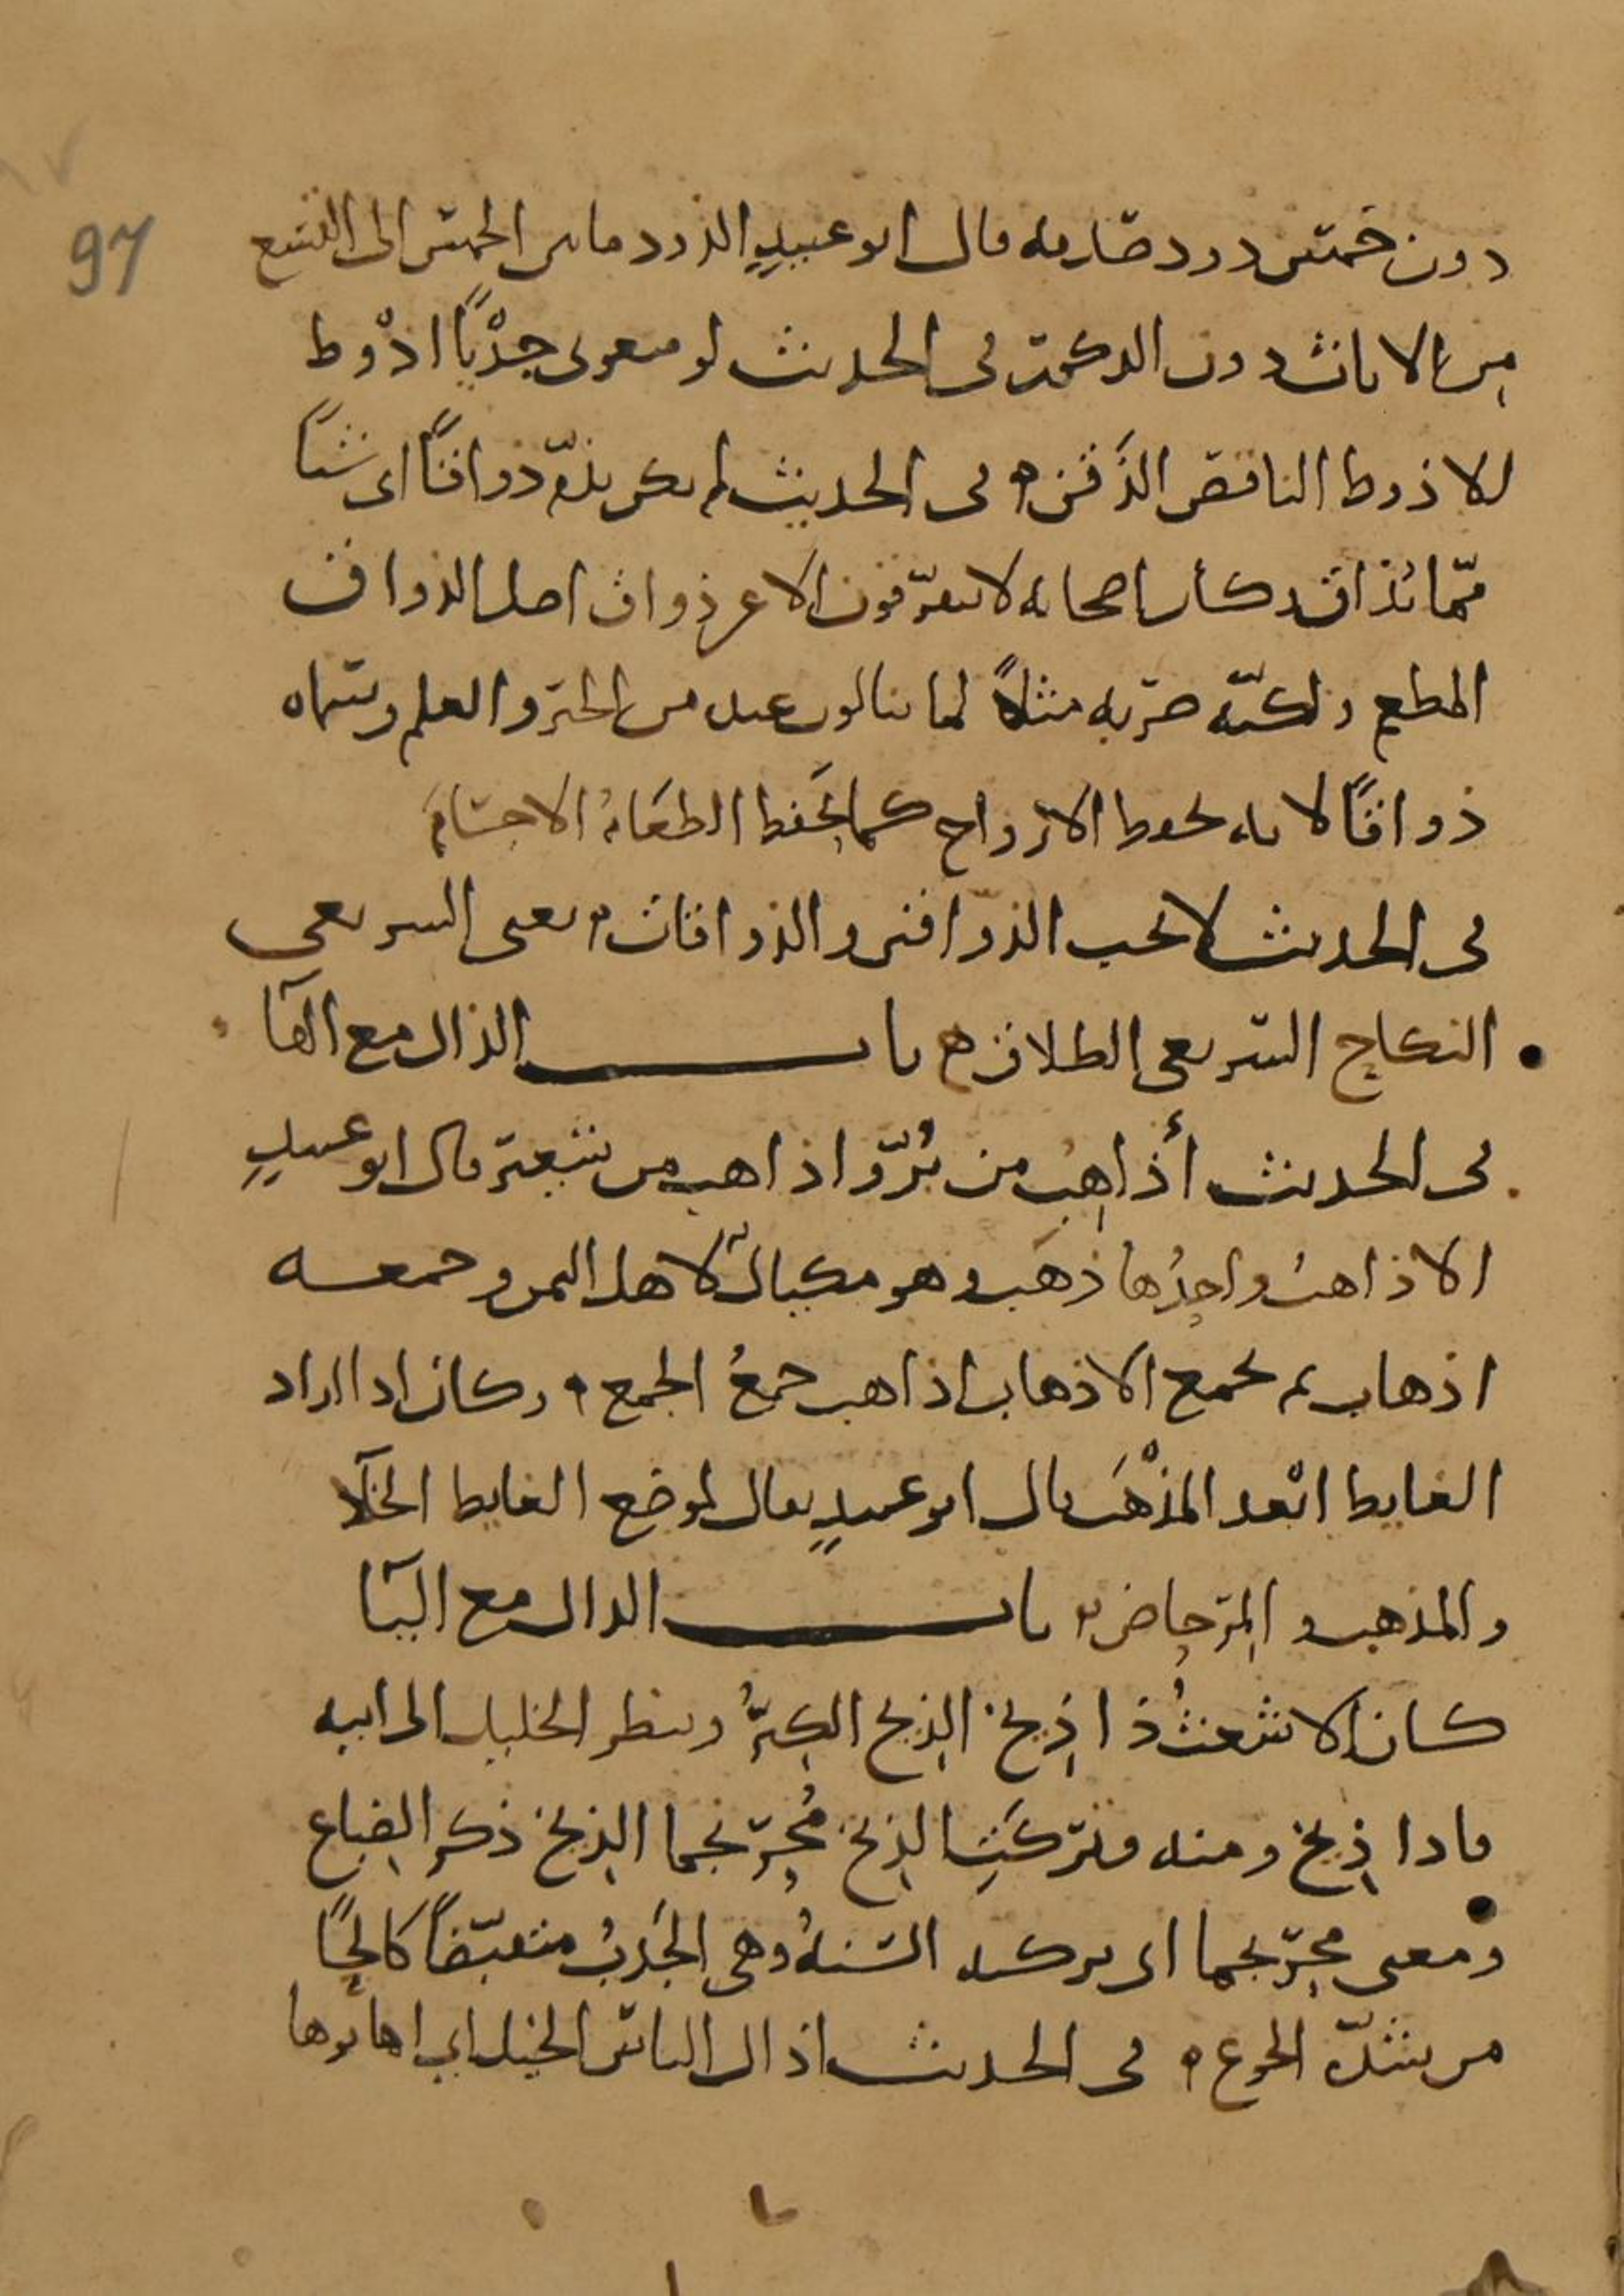 97
دون خمس ذود صدقه قال ابو عبيدٍ الذود ما بين الخمس الى التسع
من الاناث دون الذكور في الحديث لو منعوني جدْيًا اذْوط
الاذوط الناقص الذَقن ه في الحديث لم يكن يذمّ ذواقًا اى شيًا
ممّا يُذاق وكان اصحابه لا يتفرّقون الا عن ذواق اصل الذواق
المطعم ولكنّه ضربه مثلاً لما ينالون عنده من الخير والعلم وسماه
ذواقًا لانه يحفظ الارواح كما يَحفظ الطعَامُ الاجسَامَ
في الحديث لا يحب الذواقين والذواقات ه يعنى السريعى
النكاح السريعى الطلاق ه باب الذال مع الهآ
في الحديث أذاهِبُ من بُرّ واذاهب من شعير قال ابو عبيدٍ
الاذاهبُ واحِدُها ذهَب وهو مكيالٌ لاهل اليمن وجمعه
اذهاب ثم يجمع الاذهاب اذاهب جمعُ الجمع ه وكان اذا اراد
الغايط ابْعد المذْهَب قال ابو عبيدٍ يقال لموضع الغايط الخلآ
والمذهب والمِرحاض ه باب الذال مع اليآ
كان الاشعثُ ذا ذِيخ الذِيخ الكِبرُ وينظر الخليل الى ابيه
فاذا ذِيخ ومنه وتركَتِ الذِيخ مُحرَنجِما الذِيخ ذكر الضِباع
ومعنى محرنجما اى تركته السَنهُ وهى الجَدبُ منقبّضًا كالحًا
من شدّه الجوع ه في الحديث اذال الناس الخيل اي اهانوها